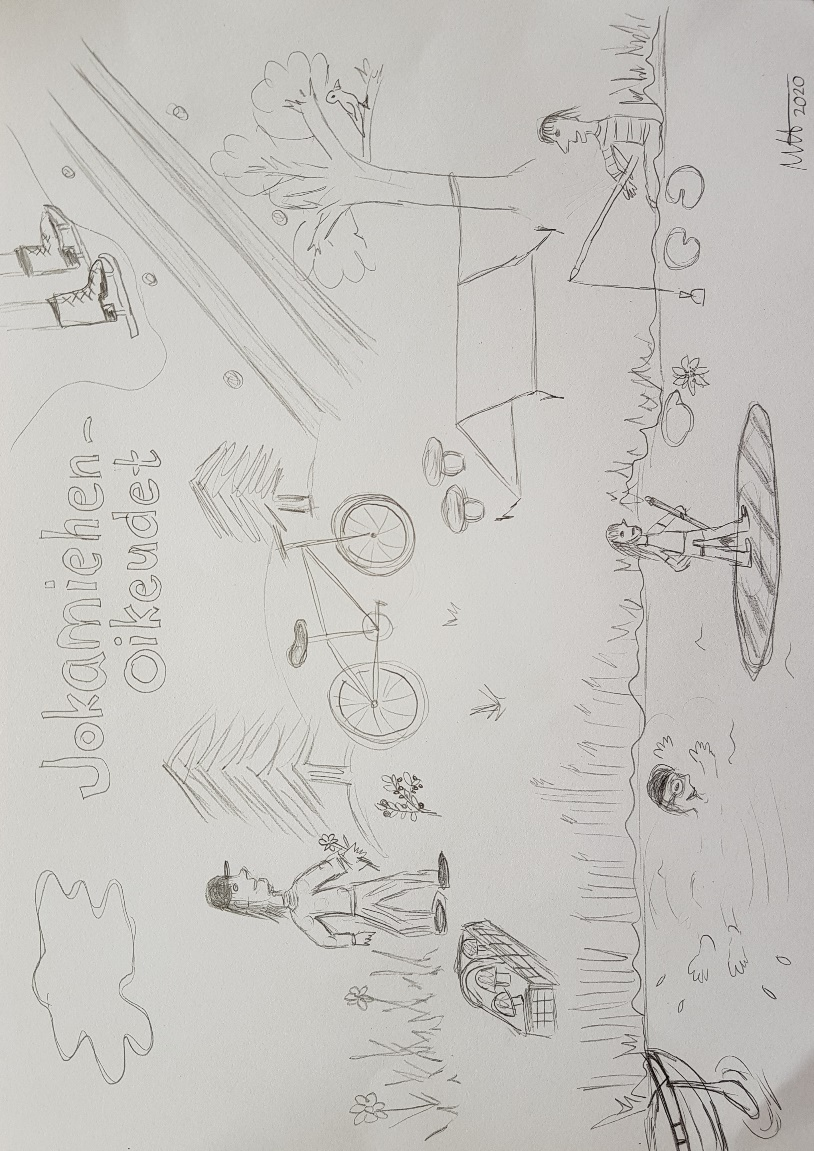 Jokamiehen-
oikeudet
2020